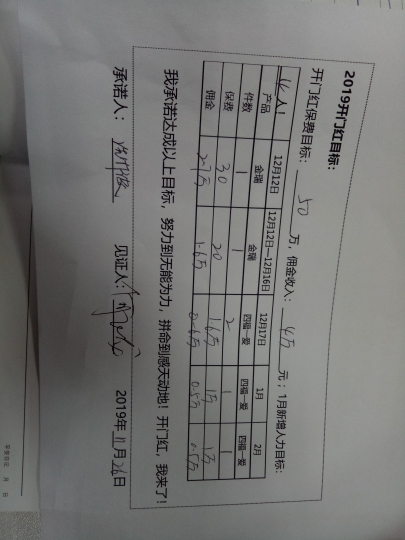 2019开门红目标：
开门红保费目标： 50 万，佣金收入： 4万 元；1月新增人力目标：
4人！
产品 12月12日 12月12日—12月16日 12月17日 1月 2月
金瑞 金瑞 四福一爱 四福一爱 四福一爱
件数 1 1 2 1 1
保费 30 20 1.6万 1万 1万
佣金 1.6万 0.6万 0.5万 0.5万
我承诺达成以上目标，努力到无能为力，拼命到感天动地！开门红，我来了！
承诺人： 见证人： 2019年11月26日